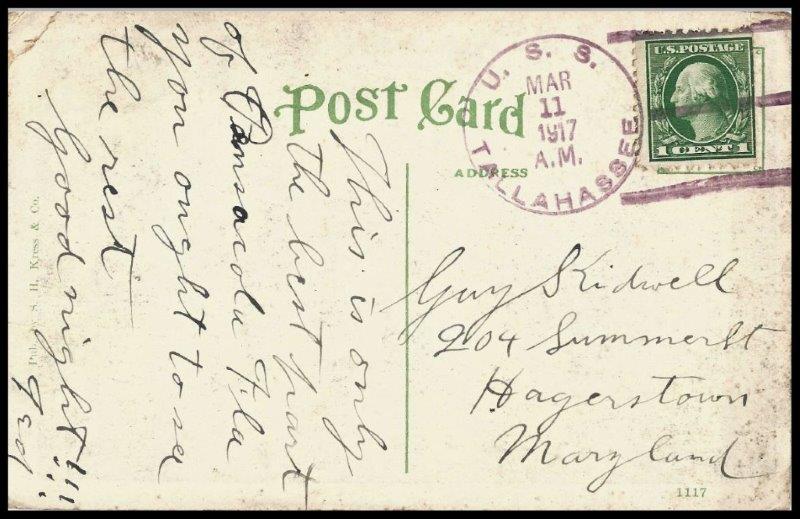 Post Card
ADDRESS
U. S. S.
TALLAHASSEE
MAR
11
1917
A.M.
U.S. POSTAGE
1 CENT 1
This is only
the best part
of Pensacola Fla
you ought to see
the rest
Good night!!!
Guy Kidwell
204 Summer St
Hagerstown
Maryland
S. H. Kress & Co.
1117